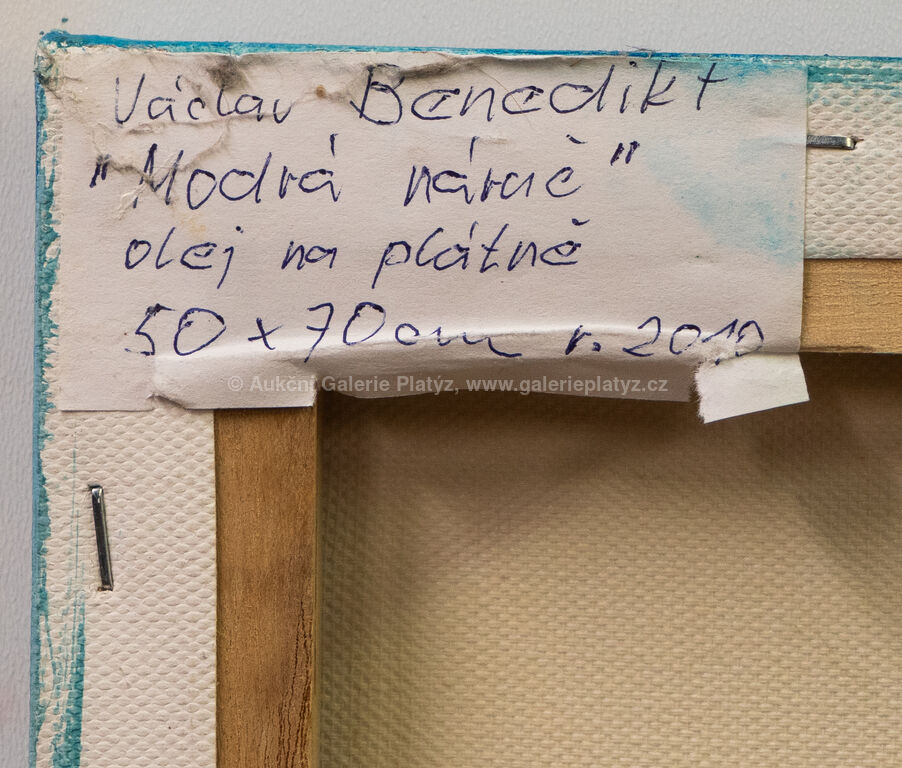 Václav Benedikt
"Modrá náruč"
olej na plátně
50 x 70 cm r. 2010
© Aukční Galerie Platýz, www.galerieplatyz.cz